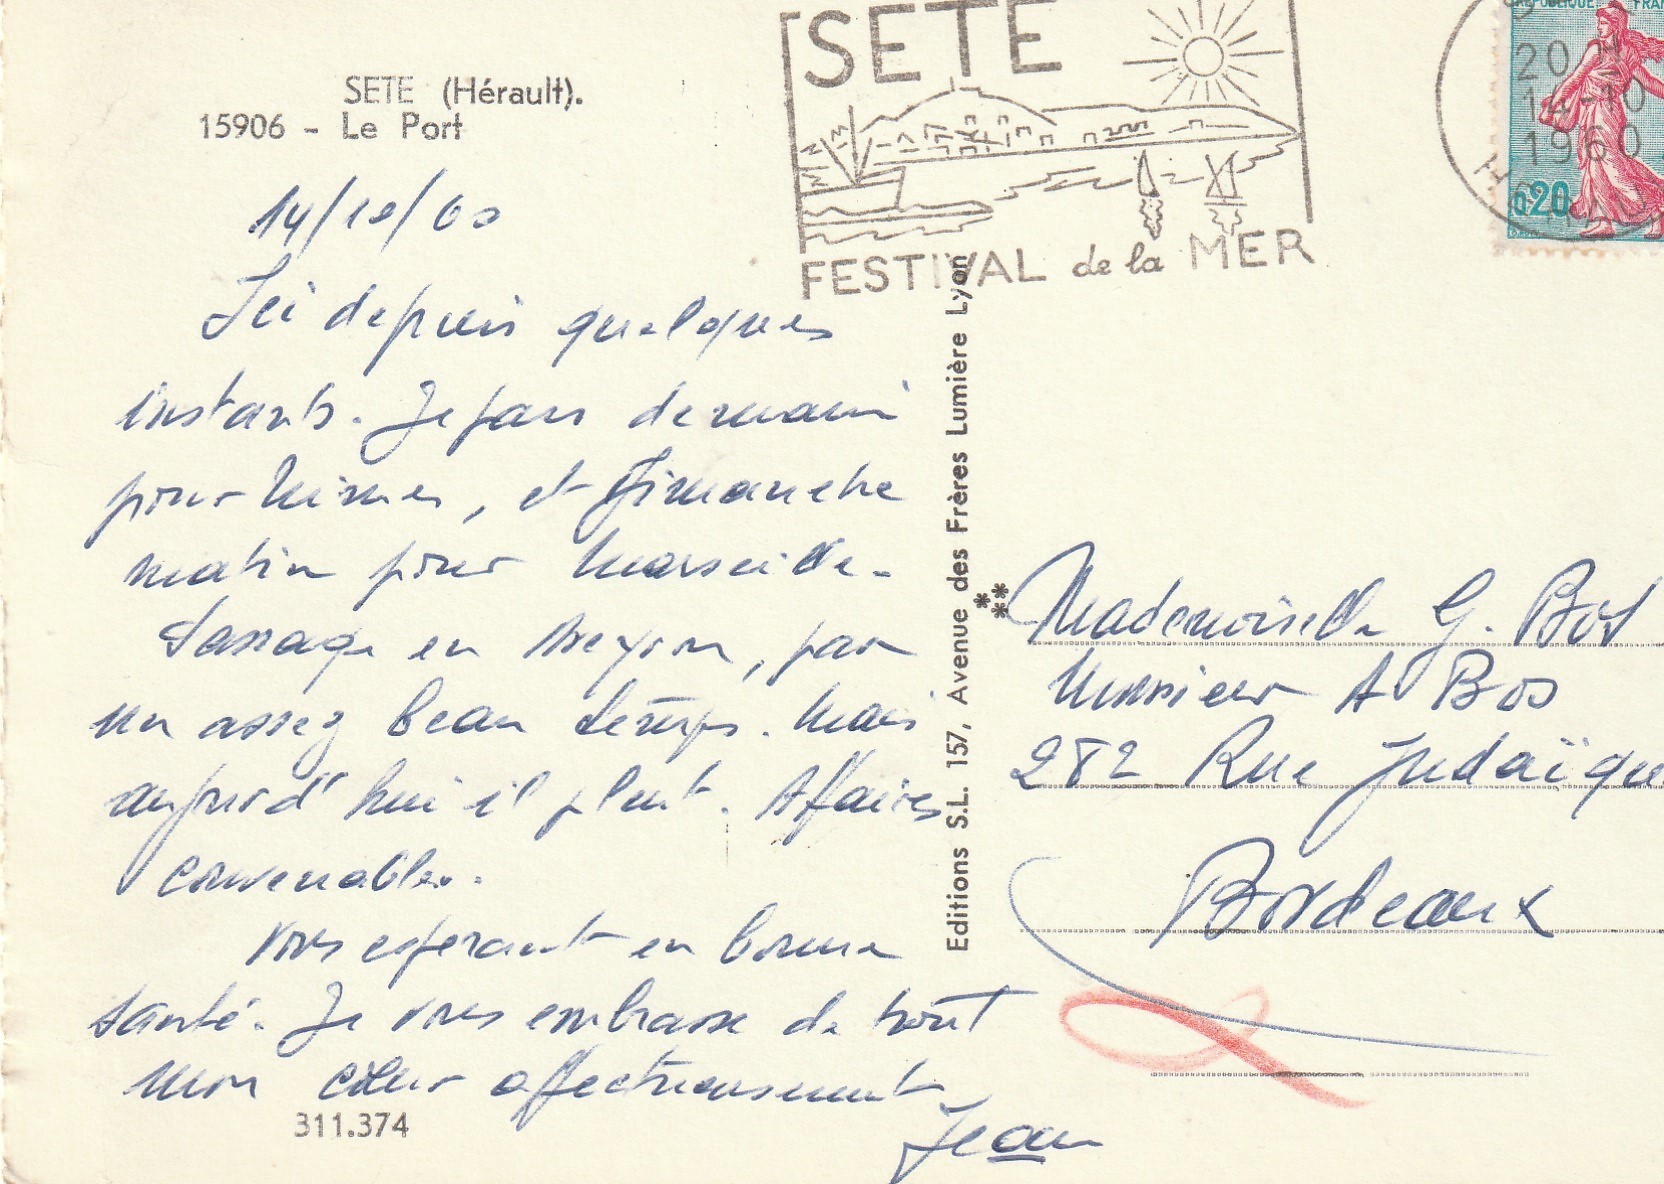 SETE (Hérault).
15906 - Le Port
14/10/60
Ici depuis quelques
instants. Je pars demain
pour Nimes, et Dimanche
matin pour Marseille.
Passage en Aveyron, par
un assez beau temps. Mais
aujourd'hui il pleut. Affaires
convenables.
Vous espérant en bonne
santé. Je vous embrasse de tout
mon cœur affectueusement
Jean
311.374
SETE
FESTIVAL de la MER
Editions S.L. 157, Avenue des Frères Lumière Lyon
REPUBLIQUE FRAN
20 H
14-10
1960
0,20
Mademoiselle G. Bos
Monsieur A Bos
282 Rue Judaïque
Bordeaux